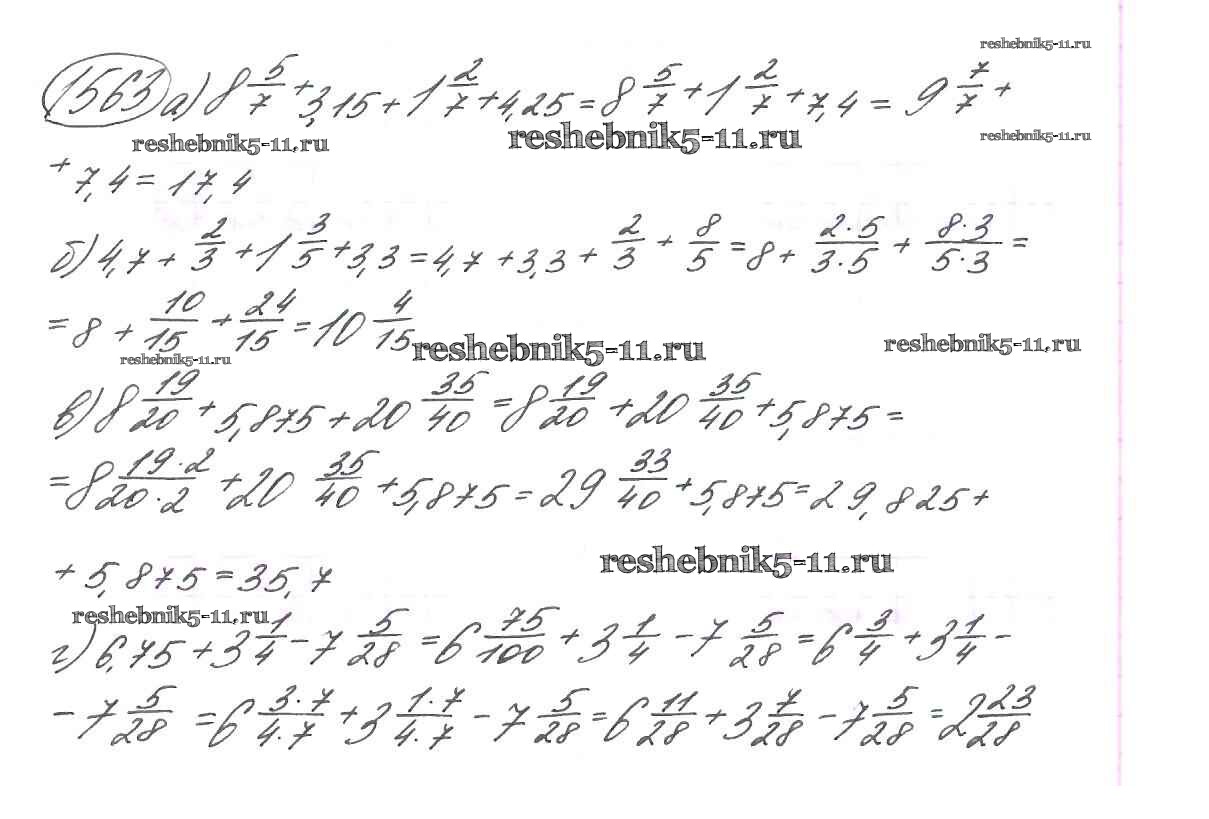 reshebnik5-11.ru
1563 а) 8 5/7 + 3,15 + 1 2/7 + 4,25 = 8 5/7 + 1 2/7 + 7,4 = 9 7/7 +
reshebnik5-11.ru reshebnik5-11.ru reshebnik5-11.ru
+ 7,4 = 17,4
б) 4,7 + 2/3 + 1 3/5 + 3,3 = 4,7 + 3,3 + 2/3 + 8/5 = 8 + 2·5/3·5 + 8·3/5·3 =
= 8 + 10/15 + 24/15 = 10 4/15
reshebnik5-11.ru reshebnik5-11.ru reshebnik5-11.ru
в) 8 19/20 + 5,875 + 20 35/40 = 8 19/20 + 20 35/40 + 5,875 =
= 8 19·2/20·2 + 20 35/40 + 5,875 = 29 33/40 + 5,875 = 29,825 +
reshebnik5-11.ru
+ 5,875 = 35,7
reshebnik5-11.ru
г) 6,75 + 3 1/4 - 7 5/28 = 6 75/100 + 3 1/4 - 7 5/28 = 6 3/4 + 3 1/4 -
- 7 5/28 = 6 3·7/4·7 + 3 1·7/4·7 - 7 5/28 = 6 11/28 + 3 7/28 - 7 5/28 = 2 23/28